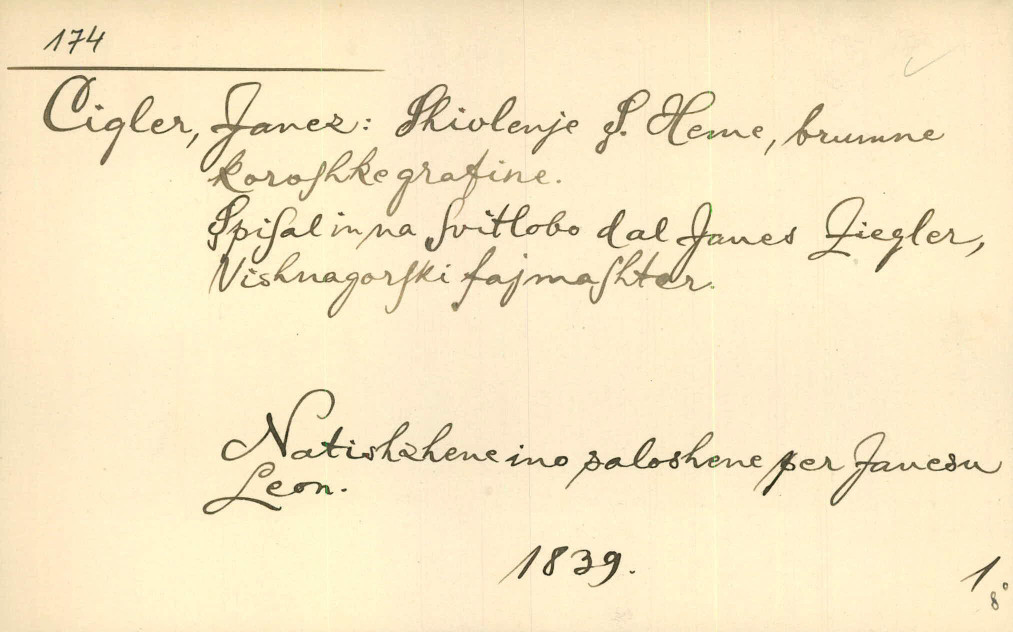 174
Cigler, Janez: Shivlenje S. Heme, brumne
koroſhke grafine.
Spiſal in na ſvitlobo dal Janes Ziegler,
Vishnagorſki fajmaſhter.
Natishzhene ino saloshene per Janesu
Leon.
1839.
1
8°